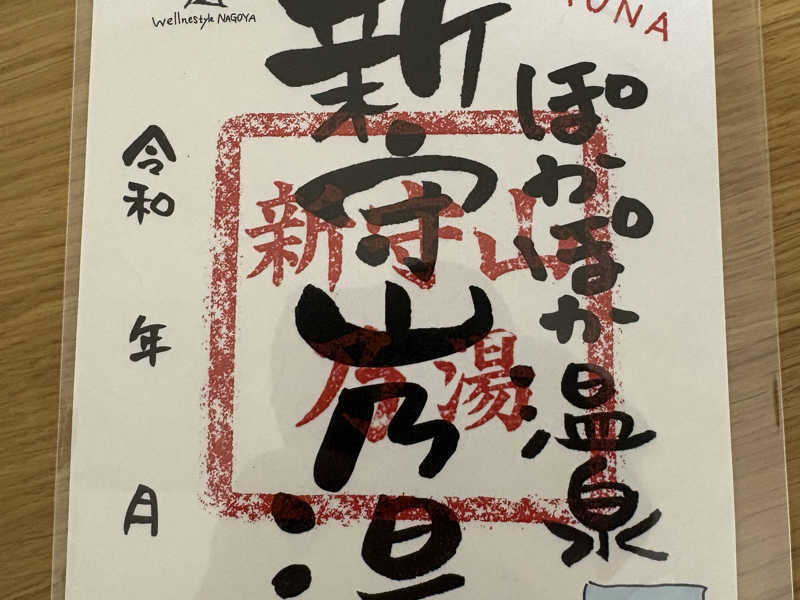 Wellnestyle NAGOYA
ぽかぽか温泉
新守山乃湯
新守山
乃湯
令和 年 月